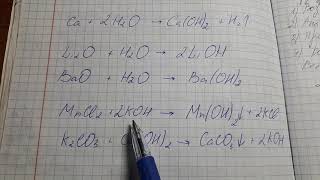 Ca + 2H₂O → Ca(OH)₂ + H₂↑
Li₂O + H₂O → 2LiOH
BaO + H₂O → Ba(OH)₂
MnCl₂ + 2KOH → Mn(OH)₂↓ + 2KCl
K₂CO₃ + OH)₂ → CaCO₃↓ + 2KOH